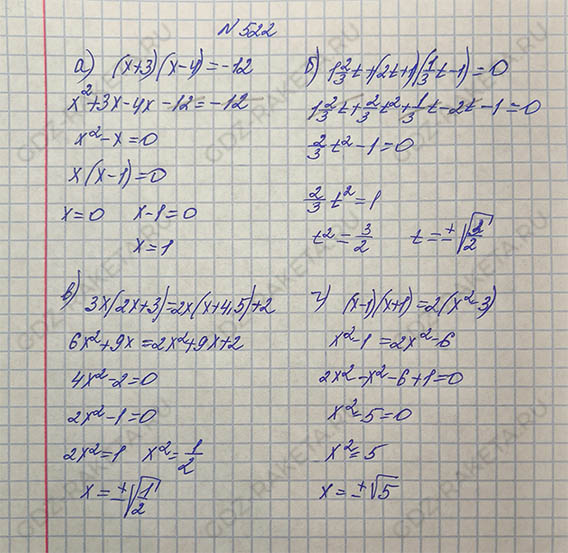 N 522
а) (x+3)(x-4)=-12
x²+3x-4x-12=-12
x²-x=0
x(x-1)=0
x=0 x-1=0
x=1
б) 1 2/3 t+(2t+1)(1/3 t-1)=0
1 2/3 t+2/3 t²+1/3 t-2t-1=0
2/3 t²-1=0
2/3 t²=1
t²=3/2 t=±√3/2
в) 3x(2x+3)=2x(x+4,5)+2
6x²+9x=2x²+9x+2
4x²-2=0
2x²-1=0
2x²=1 x²=1/2
x=±√1/2
г) (x-1)(x+1)=2(x²-3)
x²-1=2x²-6
2x²-x²-6+1=0
x²-5=0
x²=5
x=±√5
GDZ-RAKETA.RU